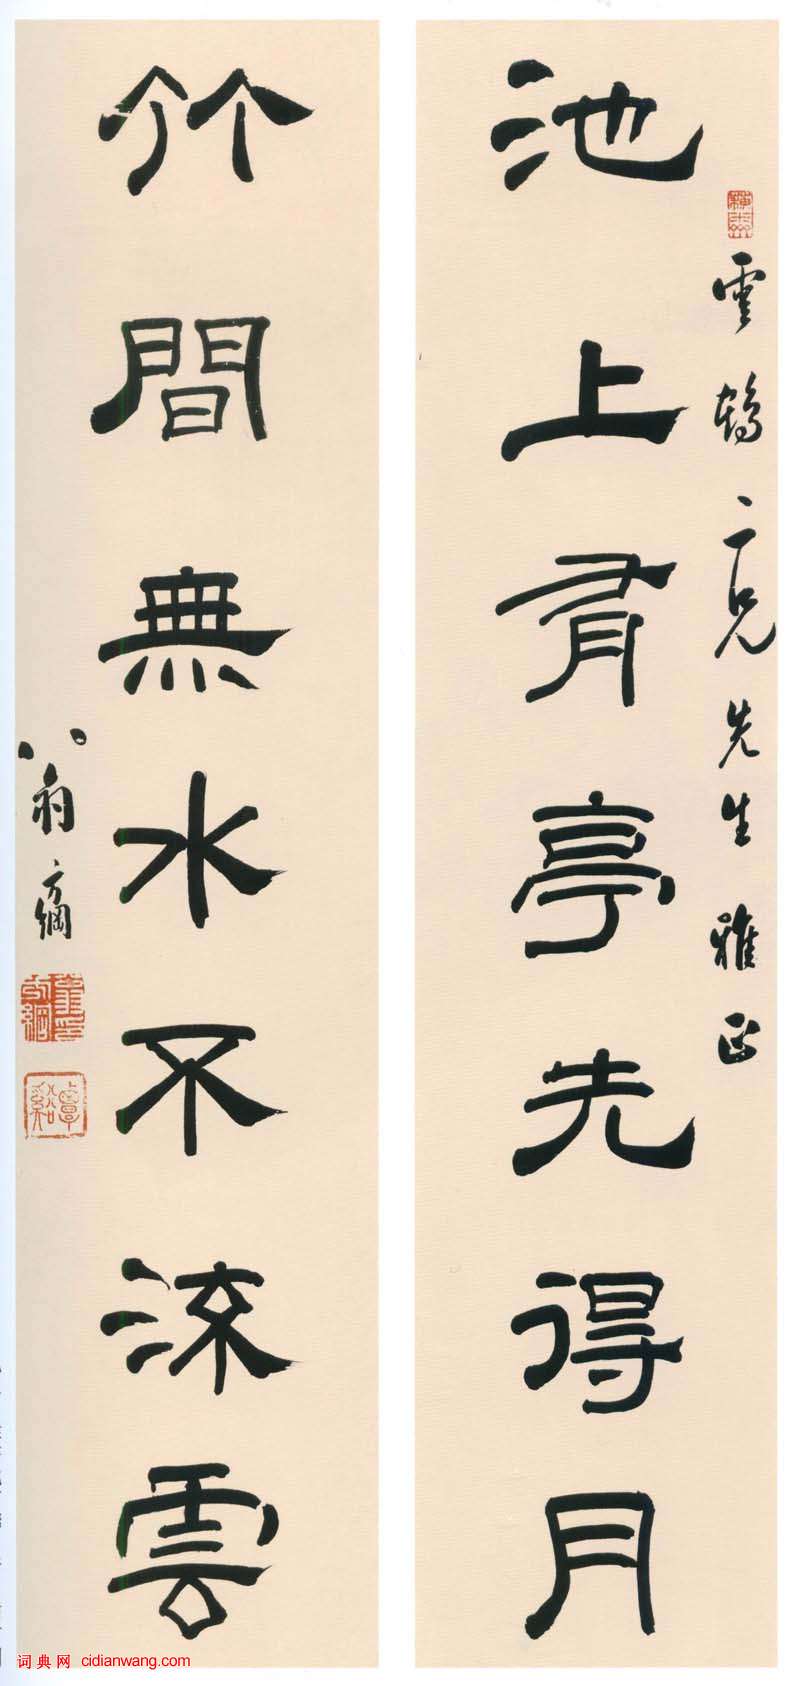 池上有亭先得月
雲鶴二兄先生雅正
竹間無水不流雲
八翁方綱
詞典网 cidianwang.com